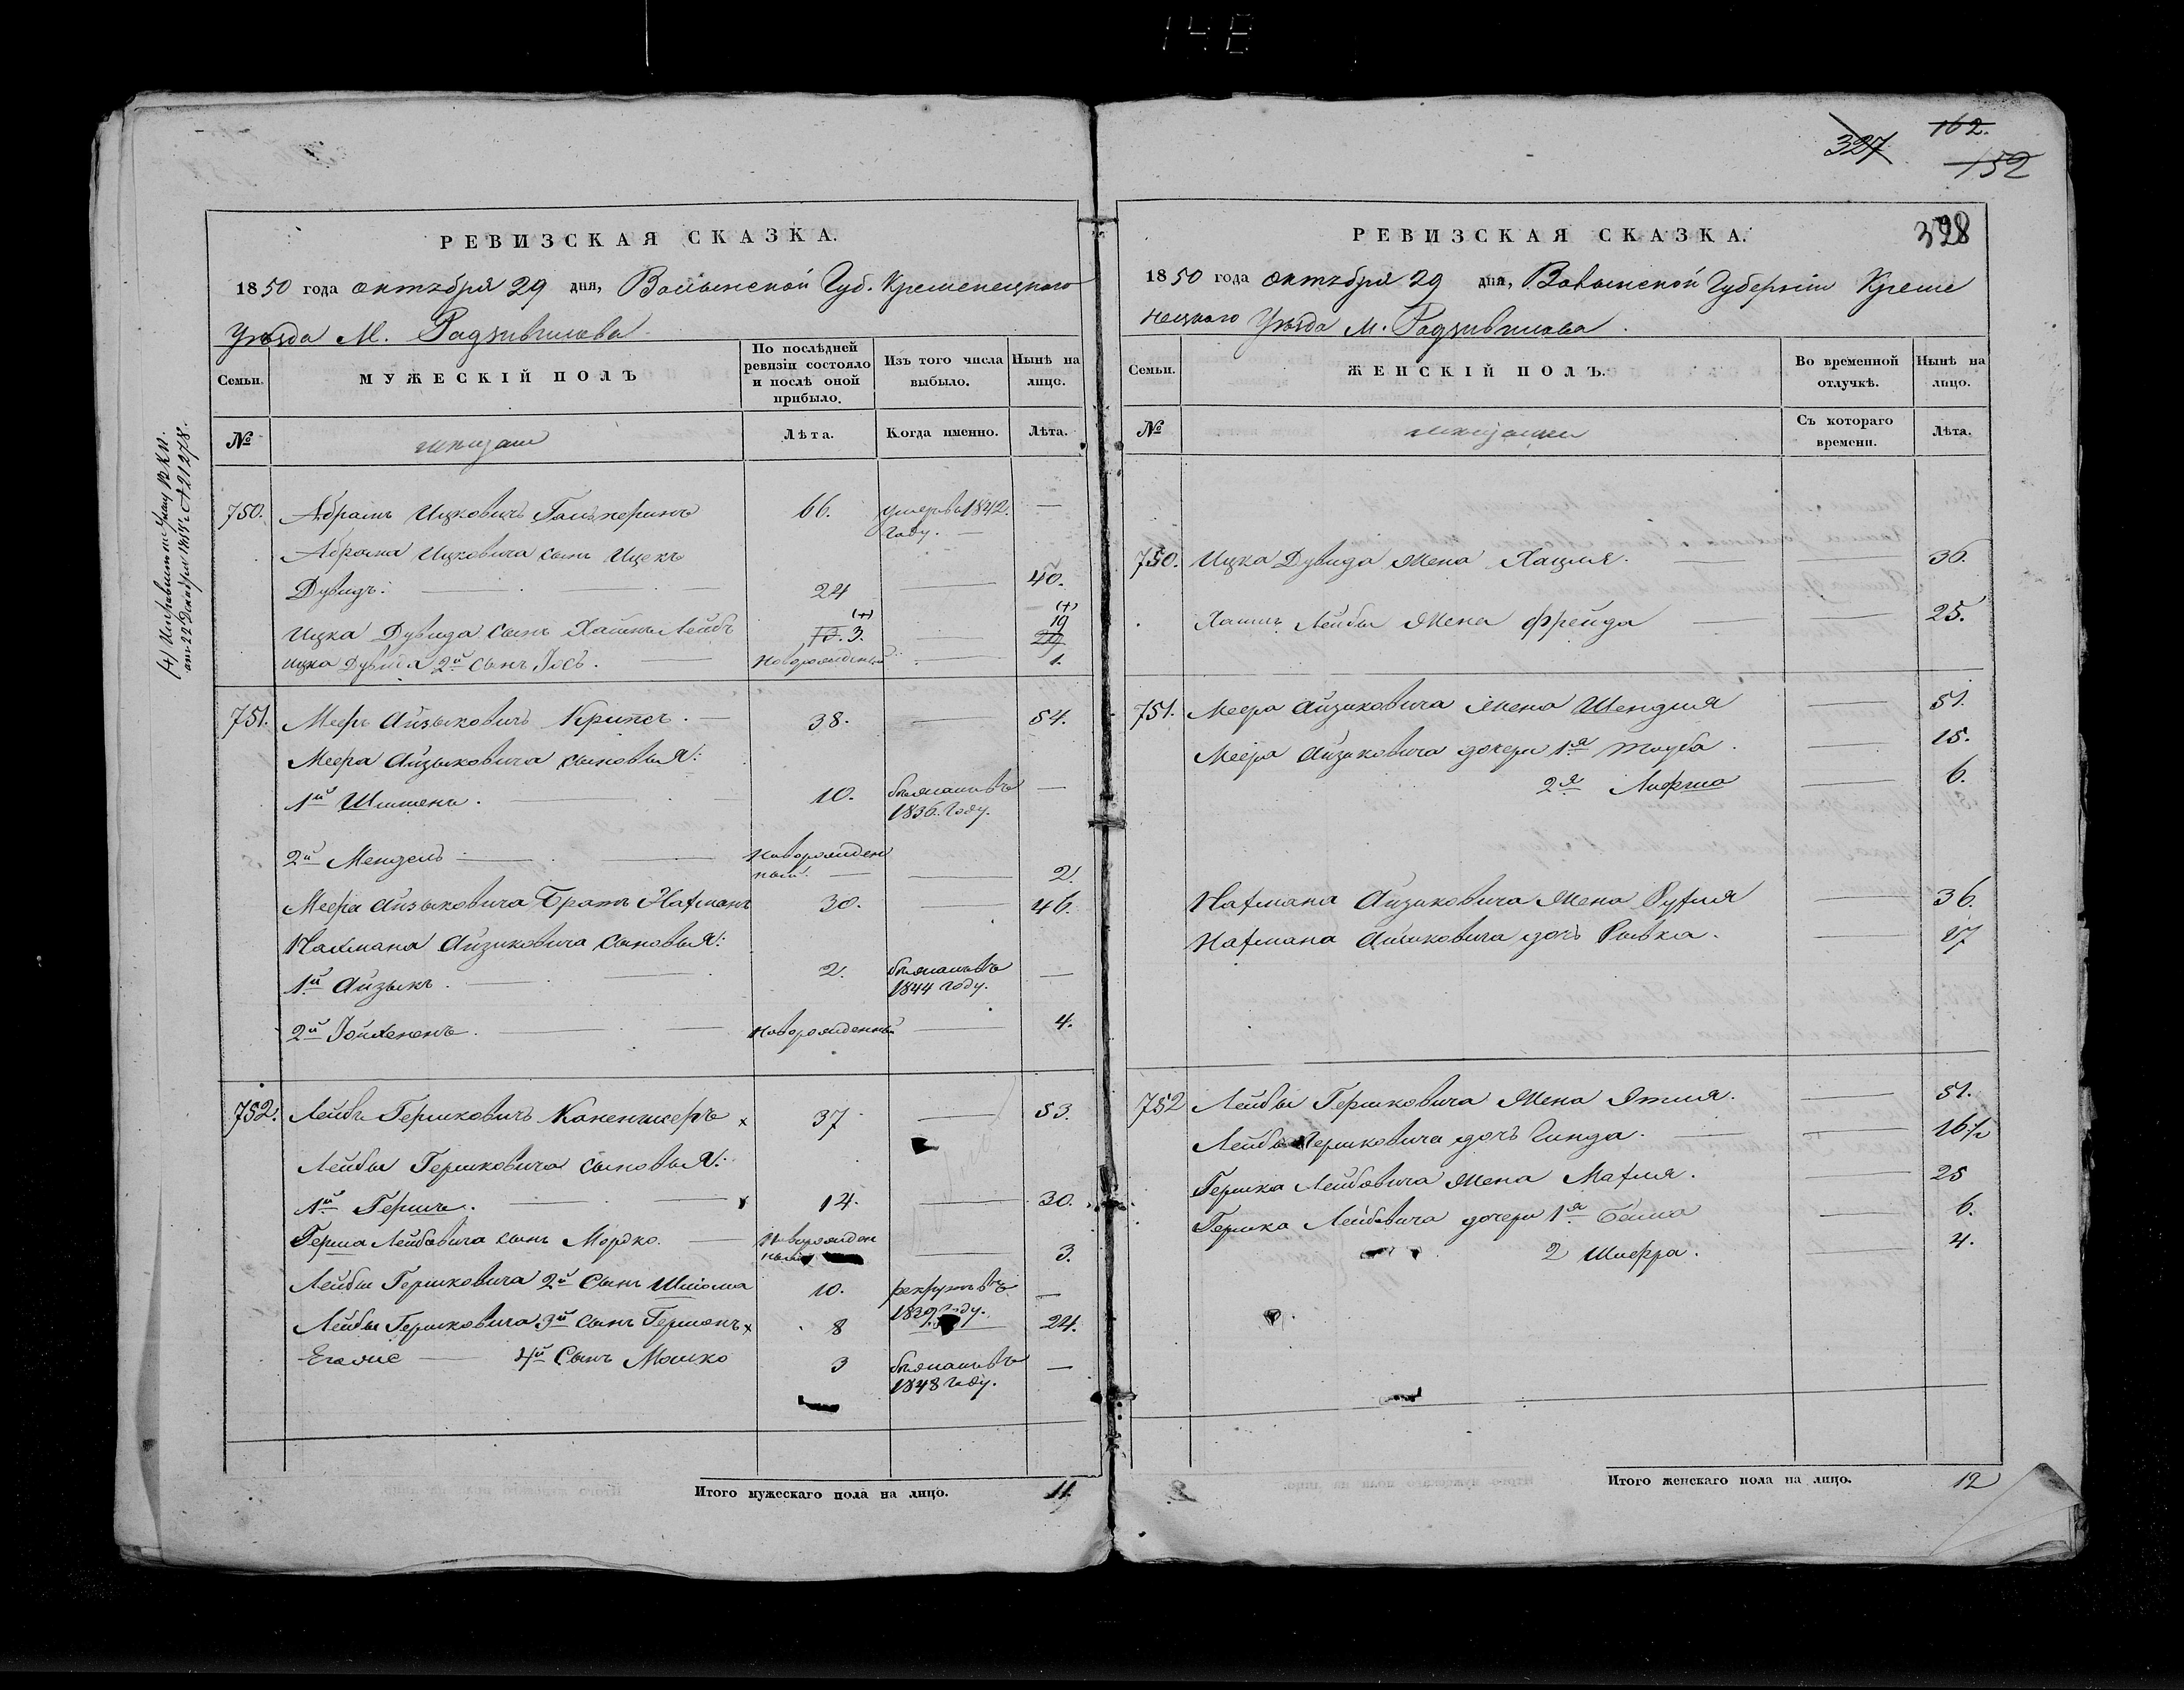 148
РЕВИЗСКАЯ СКАЗКА.
1850 года октября 29 дня, Волынской Губ. Кременецкаго
Уезда М. Радзивилова
Семьи.
МУЖЕСКІЙ ПОЛЪ
По послѣдней ревизіи состояло и послѣ оной прибыло.
Изъ того числа выбыло.
Нынѣ на лицо.
№
Лѣта.
Когда именно.
Лѣта.
750. Абрамъ Ицковичъ Гальперинъ 66. умеръ въ 1842. —
году. —
Абрама Ицковича сынъ Ицекъ
Дувидъ: 24 — 40.
(+) (+)
19
Ицка Дувида сынъ Хаимъ Лейбъ 3 —
Ицка Дувида 2й сынъ Іосъ. новорожденный — 1.
751. Мееръ Айзыковичъ Крипсъ. 38. — 54.
Меера Айзыковича сыновья:
1й Шимень. 10. бежалъ въ —
1836. году.
2й Мендель новорожден
ный. — 2.
Меера Айзыковича Братъ Нахманъ 30. — 46.
Нахмана Айзиковича сыновья:
1й Айзыкъ. 2. бежалъ въ —
1844 году.
2й Іойхененъ. новорожденный — 4.
752. Лейбъ Гершковичъ Каненгисеръ x 37 — 53.
Лейбы Гершковича сыновья:
1й Гершъ. 14. — 30.
Герша Лейбовича сынъ Мордко. новорожден
ный — 3.
Лейбы Гершковича 2й Сынъ Шліома 10. рекрутъ въ —
1839 году.
Лейбы Гершковича 3й сынъ Гершонъ x 8 — 24.
Егоже — 4й Сынъ Мошко 3 бежалъ въ —
1848 году.
Итого мужескаго пола на лицо. 11.
327 162.
152
328
РЕВИЗСКАЯ СКАЗКА.
1850 года октября 29 дня, Волынской Губерніи Креме
нецкаго Уезда М. Радзивилова.
Семьи.
ЖЕНСКІЙ ПОЛЪ.
Во временной отлучкѣ.
Нынѣ на лицо.
№
Съ котораго времени.
Лѣта.
750. Ицка Дувида жена Хацля. — 36.
Хаима Лейбы жена Фрейда — 25.
751. Меера Айзиковича жена Шендля — 51.
Меера Айзиковича дочери 1я Тауба. — 15.
2я Лифша — 6.
Нахмана Айзиковича жена Рухля — 36.
Нахмана Айзиковича дочь Ривка. — 17
752 Лейбы Гершковича жена Этля. — 51.
Лейбы Гершковича дочь Гинда. — 16½
Гершка Лейбовича жена Махля. — 25
Гершка Лейбовича дочери 1я Бейла — 6.
2 Шифра. — 4.
Итого женскаго пола на лицо. 12